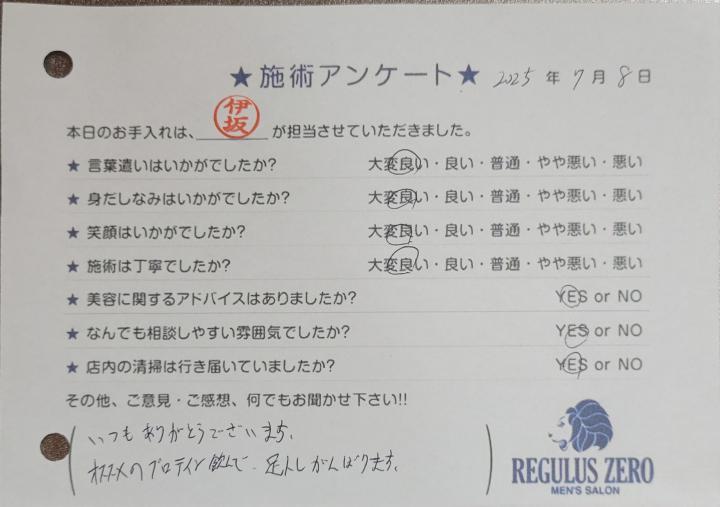 ★施術アンケート★ 2025年7月8日
本日のお手入れは、伊坂が担当させていただきました。
★ 言葉遣いはいかがでしたか? 大変良い・良い・普通・やや悪い・悪い
★ 身だしなみはいかがでしたか? 大変良い・良い・普通・やや悪い・悪い
★ 笑顔はいかがでしたか? 大変良い・良い・普通・やや悪い・悪い
★ 施術は丁寧でしたか? 大変良い・良い・普通・やや悪い・悪い
★ 美容に関するアドバイスはありましたか? YES or NO
★ なんでも相談しやすい雰囲気でしたか? YES or NO
★ 店内の清掃は行き届いていましたか? YES or NO
その他、ご意見・ご感想、何でもお聞かせ下さい!!
いつもありがとうございます。
オススメのプロテイン飲んで、足トレがんばります。
REGULUS ZERO
MEN'S SALON